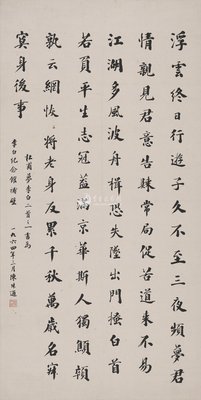 浮雲終日行遊子久不至三夜頻夢君
情親見君意告歸常局促苦道來不易
江湖多風波舟楫恐失墜出門搔白首
若負平生志冠蓋滿京華斯人獨顦顇
孰云網恢〻將老身反累千秋萬歲名寂
寞身後事
杜甫夢李白二首之一書為
李白紀念館補壁
一九六四年三月陳